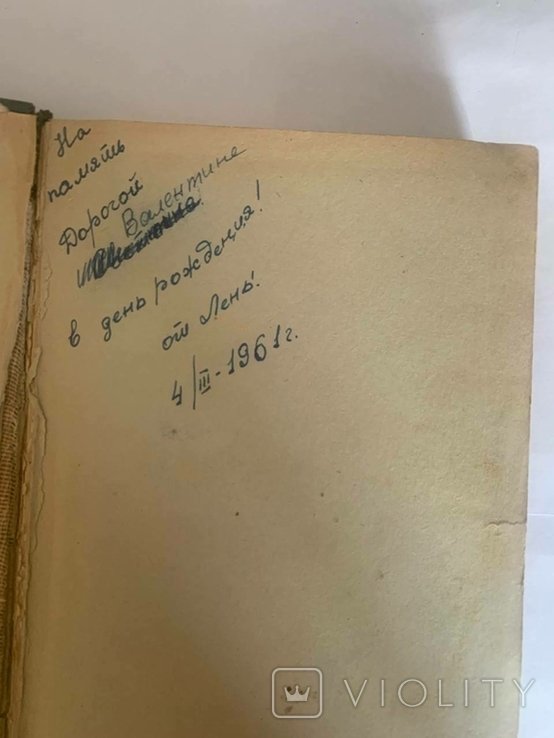 На
память
Дорогой
Валентине
в день рождения!
от Лены!
4/III-1961г.
VIOLITY